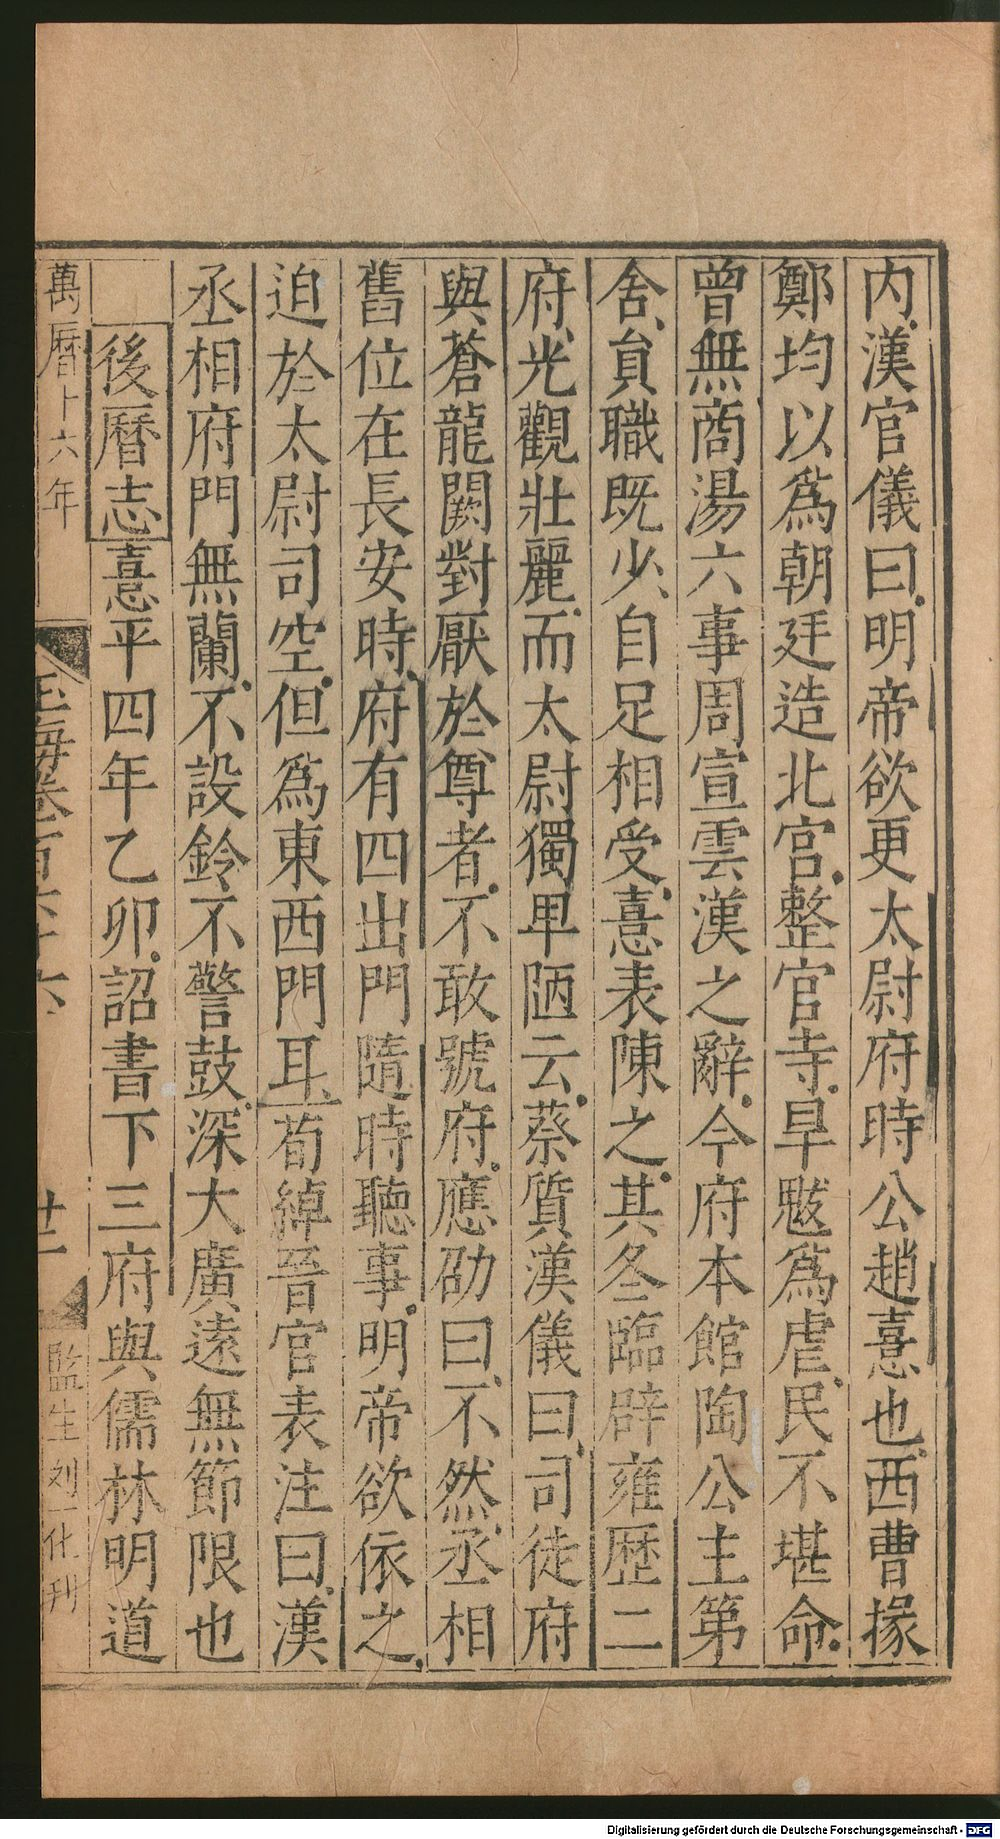 内漢官儀曰明帝欲更太尉府時公趙憙也西曹掾
鄭均以爲朝廷造北宮整官寺旱魃爲虐民不堪命
曾無商湯六事周宣雲漢之辭今府本館陶公主第
舍貟職既少自足相受憙表陳之其冬臨辟雍歷二
府光觀壯麗而太尉獨卑陋云蔡質漢儀曰司徒府
與蒼龍闕對厭於尊者不敢號府應劭曰不然丞相
舊位在長安時府有四出門隨時聽事明帝欲依之
迫於太尉司空但爲東西門耳荀綽晉官表注曰漢
丞相府門無蘭不設鈴不警鼓深大廣遠無節限也
後曆志熹平四年乙卯詔書下三府與儒林明道
萬曆十六年
玉海卷百六十六
廿二
監生刘一化刊
Digitalisierung gefördert durch die Deutsche Forschungsgemeinschaft - DFG